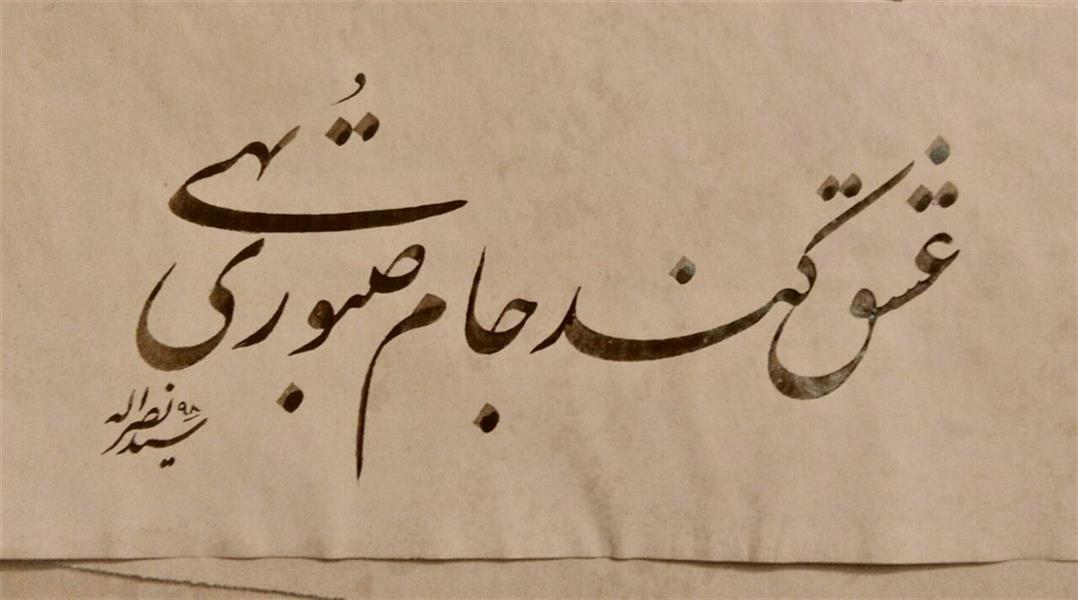 عشق کند جام صبوری تُهی
سید نصرالله ۹۸